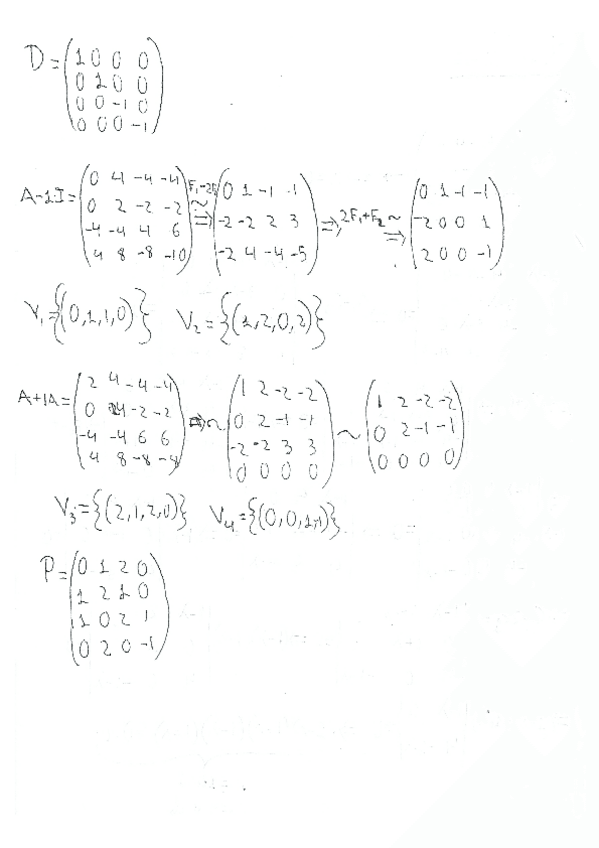 D = (1 0 0 0
0 1 0 0
0 0 -1 0
0 0 0 -1)
A-1I = (0 4 -4 -4
0 2 -2 -2
-4 -4 4 6
4 8 -8 -10) F₁-2F ~ ⇒ (0 1 -1 -1
-2 -2 2 3
-2 4 -4 -5) ⇒ 2F₁+F₂ ~ ⇒ (0 1 -1 -1
-2 0 0 1
2 0 0 -1)
V₁ = {(0,1,1,0)} V₂ = {(1,2,0,2)}
A+1A = (2 4 -4 -4
0 4 -2 -2
-4 -4 6 6
4 8 -8 -8) ⇒ ~ (1 2 -2 -2
0 2 -1 -1
-2 -2 3 3
0 0 0 0) ~ (1 2 -2 -2
0 2 -1 -1
0 0 0 0)
V₃ = {(2,1,2,0)} V₄ = {(0,0,1,-1)}
P = (0 1 2 0
1 2 1 0
1 0 2 1
0 2 0 -1)